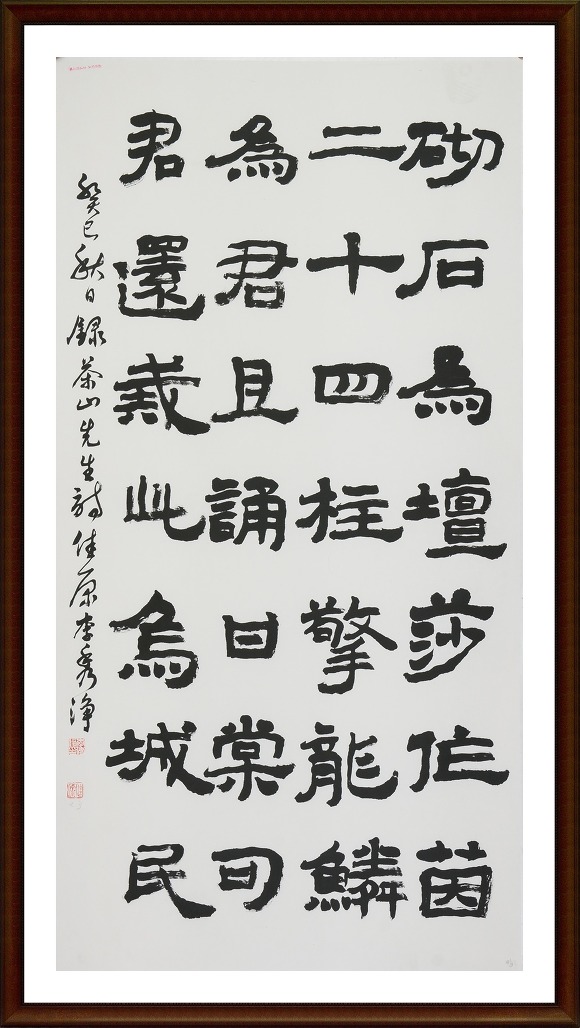 砌石為壇莎作茵
二十四柱擎龍鱗
為君且誦甘棠句
君還此烏城民
癸巳秋日錄茶山先生詩佳原李秀淨